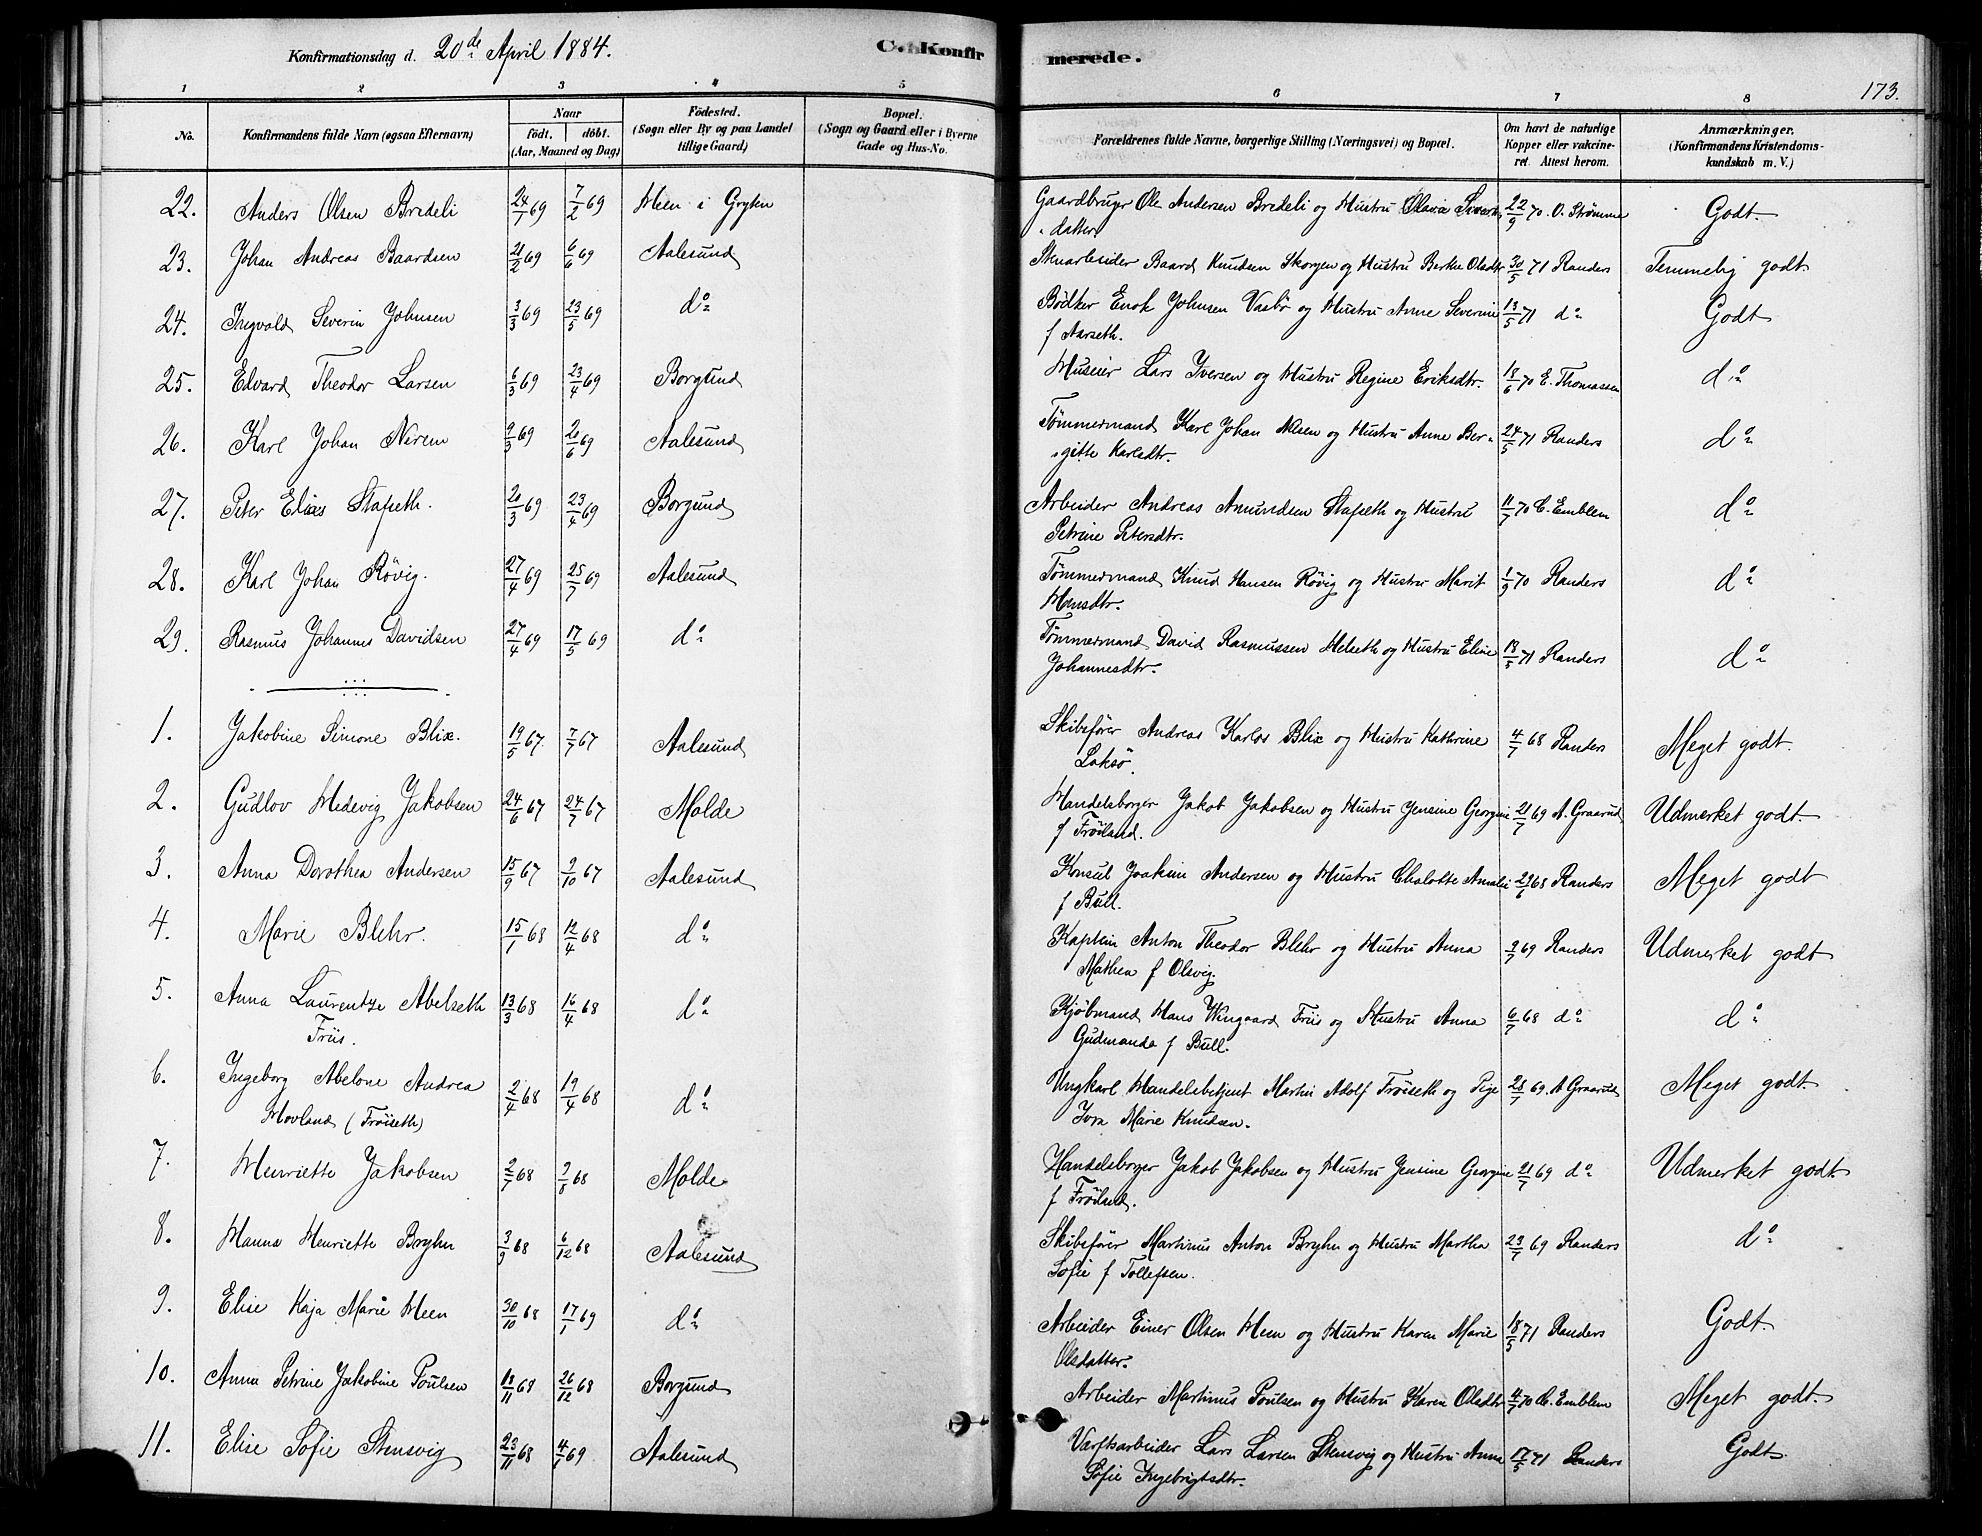 Konfirmationsdag d. 20de April 1884. C. Konfirmerede. 173.
1 2 3 4 5 6 7 8
No. Konfirmandens fulde Navn (ogsaa Efternavn) Naar födt. döbt. (Aar, Maaned og Dag) Födested. (Sogn eller By og paa Landet tillige Gaard) Bopæl. (Sogn og Gaard eller i Byerne Gade og Hus-No. Forældrenes fulde Navne, borgerlige Stilling (Næringsvei) og Bopæl. Om havt de naturlige Kopper eller vakcineret. Attest herom. Anmærkninger. (Konfirmandens Kristendomskundskab m. V.)
22. Anders Olsen Bredeli 24/1 69 7/2 69 Hen i Gryten Gaardbruger Ole Andersen Bredeli og Hustru Olava Sivertsdatter 22/9 70 O. Strømme Godt.
23. Johan Andreas Baardsen 21/2 69 6/6 69 Aalesund Stenarbeider Baard Knudsen Skorgen og Hustru Berthe Olsdtr 30/5 71 Randers Temmelig godt
24. Ingvald Severin Johnsen 3/3 69 23/5 69 do Bødker Enok Johnsen Vasbø og Hustru Anne Severine f Aarseth. 13/5 71 do Godt
25. Edvard Theodor Larsen 6/3 69 23/4 69 Borgund Murer Lars Iversen og Hustru Regine Eriksdtr. 18/6 70 E. Thomassen do
26. Karl Johan Nirem 9/3 69 20/6 69 Aalesund Tømmermand Karl Johan Olsen og Hustru Anne Bergitte Karlsdtr. 24/5 71 Randers do
27. Peter Elias Stafseth. 20/3 69 23/4 69 Borgund Arbeider Andreas Amundsen Stafseth og Hustru Petrine Petersdtr. 11/7 70 C. Emblem do
28. Karl Johan Røvig. 27/4 69 25/7 69 Aalesund Tømmermand Knud Hansen Røvig og Hustru Marit Hansdtr. 1/9 70 Randers do
29. Rasmus Johannes Davidsen 27/4 69 17/5 69 do Tømmermand David Rasmussen Helseth og Hustru Eline Johannesdtr. 18/5 71 Randers do
1. Jakobine Simone Blix. 19/5 67. 7/7 67 Aalesund Skibsfører Andreas Karlos Blix og Hustru Kathrine Laksø. 4/7 68 Randers Meget godt.
2. Gudlov Hedevig Jakobsen 24/6 67 24/7 67 Molde Handelsborger Jakob Jakobsen og Hustru Jensine Georgine f Frøiland. 21/7 69 A. Graarud Udmerket godt
3. Anna Dorothea Andersen 15/9 67 9/10 67 Aalesund Konsul Joakim Andersen og Hustru Chalotte Amalie f Bull. 23/6 68 Randers Meget godt
4. Marie Blehr. 15/1 68 12/4 68 do Kaptein Anton Theodor Blehr og Hustru Anna Mathea f Olsvig. 9/7 69 Randers Udmerket godt
5. Anna Laurentze Abelseth Friis. 13/3 68 16/4 68 do Kjøbmand Hans Wingaard Friis og Hustru Anna Gudmanda f Bull. 6/7 68 do do
6. Ingeborg Abelone Andrea Hovland (Frøiseth) 2/4 68 19/4 68 do Ungkarl Handelsbetjent Martin Adolf Frøiseth og Pige Marie Knudsen. 28/7 69. A. Graarud Meget godt
7. Henriette Jakobsen 2/7 68 9/8 68 Molde Handelsborger Jakob Jakobsen og Hustru Jensine Georgine f Frøiland. 21/7 69 do Udmerket godt
8. Hanna Henriette Bryhn 3/9 68 6/12 68 Aalesund Skibsfører Martinus Anton Bryhn og Hustru Martha Sofie f Tollefsen. 23/7 69 Randers do
9. Elise Kaja Marie Heen 30/10 68 17/1 69 do Arbeider Einer Olsen Heen og Hustru Karen Marie Olsdatter. 18/5 71 Randers Godt.
10. Anna Petrine Jakobine Poulsen 18/11 68 26/12 68 Borgund Arbeider Martinus Poulsen og Hustru Karen Olsdtr 4/7 70 C. Emblem Meget godt.
11. Elise Sofie Stensvig 23/11 68 4/1 69 Aalesund Værftsarbeider Lars Larsen Stensvig og Hustru Anna Sofie Ingebrigtsdtr. 17/5 71 Randers Godt